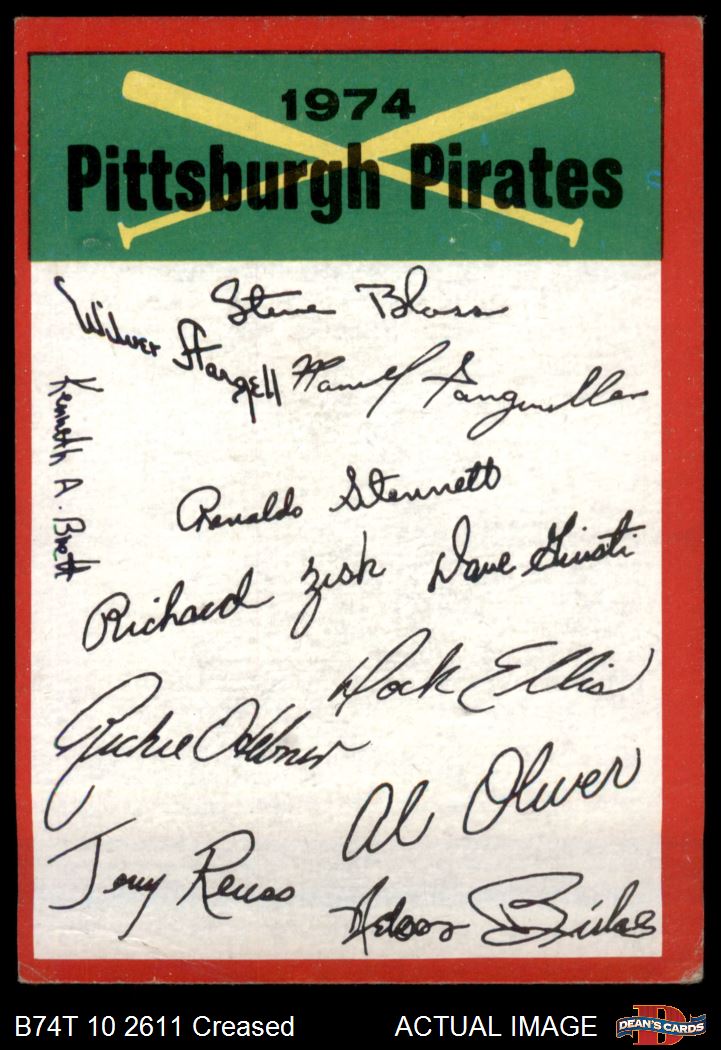 1974
Pittsburgh Pirates
Steve Blass
Wilver Stargell
Manuel Sanguillen
Kenneth A. Brett
Renaldo Stennett
Richard Zisk
Dave Giusti
Dock Ellis
Richie Hebner
Al Oliver
Jerry Reuss
Nelson Briles
B74T 10 2611 Creased
ACTUAL IMAGE
DEAN'S CARDS